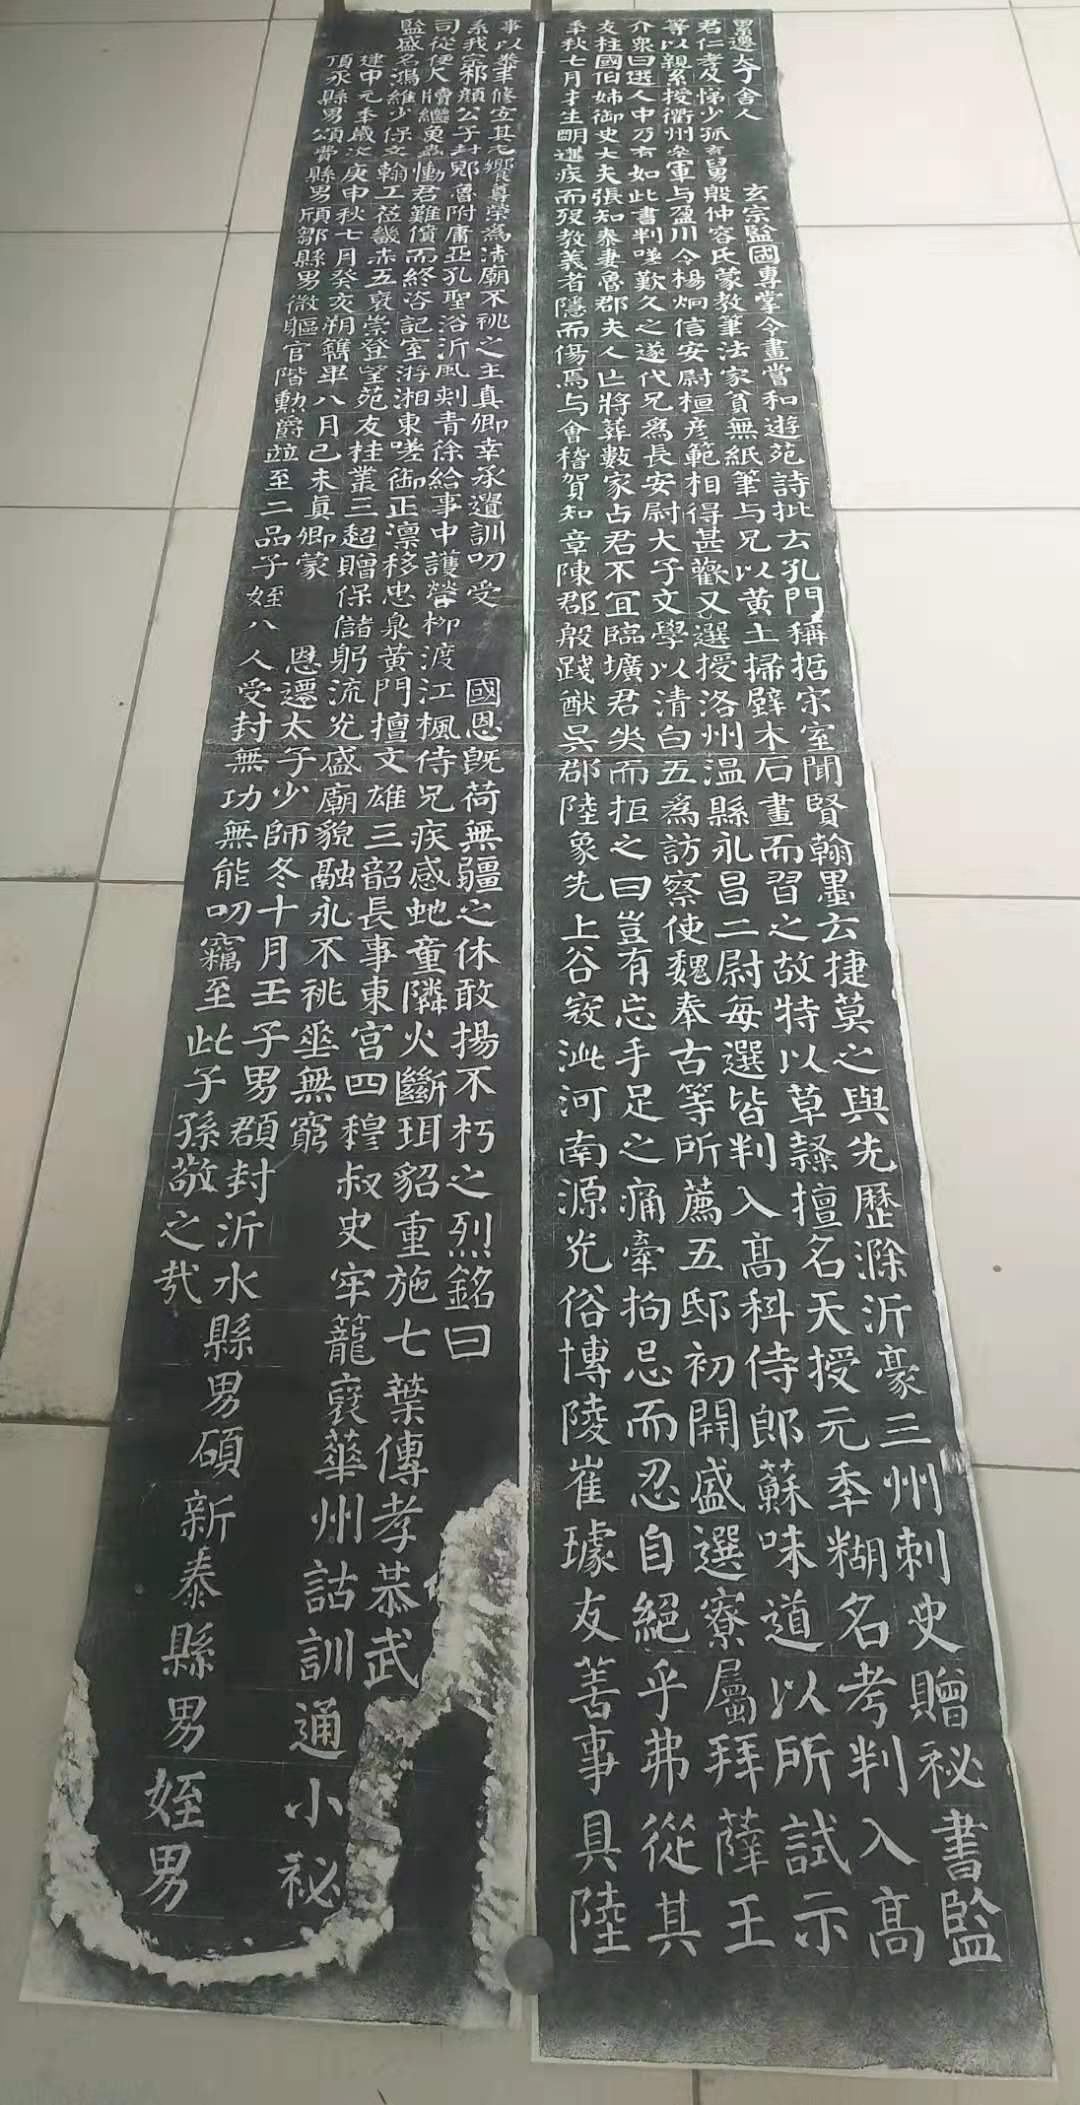 累遷太子舍人 玄宗監國專掌令畫嘗和遊苑詩批云孔門稱哲宋室聞賢翰墨云捷莫之與先歷滁沂豪三州刺史贈祕書監
君仁孝友悌少孤育舅殷仲容氏蒙教筆法家貧無紙筆与兄以黃土掃壁木石畫而習之故特以草隸擅名天授元年糊名考判入高
等以親累授衢州參軍与盈川令楊炯信安尉桓彦範相得甚歡又選授洛州溫縣永昌二尉每選皆判入高科侍郎蘇味道以所試示
介衆曰選人中乃有如此書判嗟歎久之遂代兄為長安尉太子文學以清白五為訪察使魏奉古等所薦五邸初開盛選寮屬拜薛王
友柱國伯姊御史大夫張知泰妻魯郡夫人亡將葬數家占君不宜臨壙君哭而拒之曰豈有忘手足之痛牽拘忌而忍自絕乎弗從其
年秋七月才生明遘疾而歿教義者隱而傷焉与會稽賀知章陳郡殷踐猷吳郡陸象先上谷寇泚河南源光俗博陵崔璩友善事具陸
事以奉車修立其元饗尊榮為清廟不祧之主真卿幸承遺訓叨受 國恩既荷無疆之休敢揚不朽之烈銘曰
系我宗邾顏公子封郳魯附庸亞孔聖浴沂風刺青徐給事中護營柳渡江楓侍兄疾感虵童隣火斷珥貂重施七葉傳孝恭武
司從便大牘繼奠蟲慟君難償而終咨記室游湘東嗟御正凛移忠泉黃門擅文雄三韶長事東宮四穆叔史牢籠裦華州詁訓通小祕
監盛名鴻維少保文翰工莅畿赤五袞崇登望苑友桂叢三超贈保儲躬流光盛廟貌融永不祧垂無窮
建中元年歲次庚申秋七月癸亥朔鐫畢八月己未真卿蒙 恩遷太子少師冬十月壬子男頵封沂水縣男碩新泰縣男姪男
頂承縣男頌費縣男頎鄒縣男微軀官階勲爵並至二品子姪八人受封無功無能叨竊至此子孫敬之哉